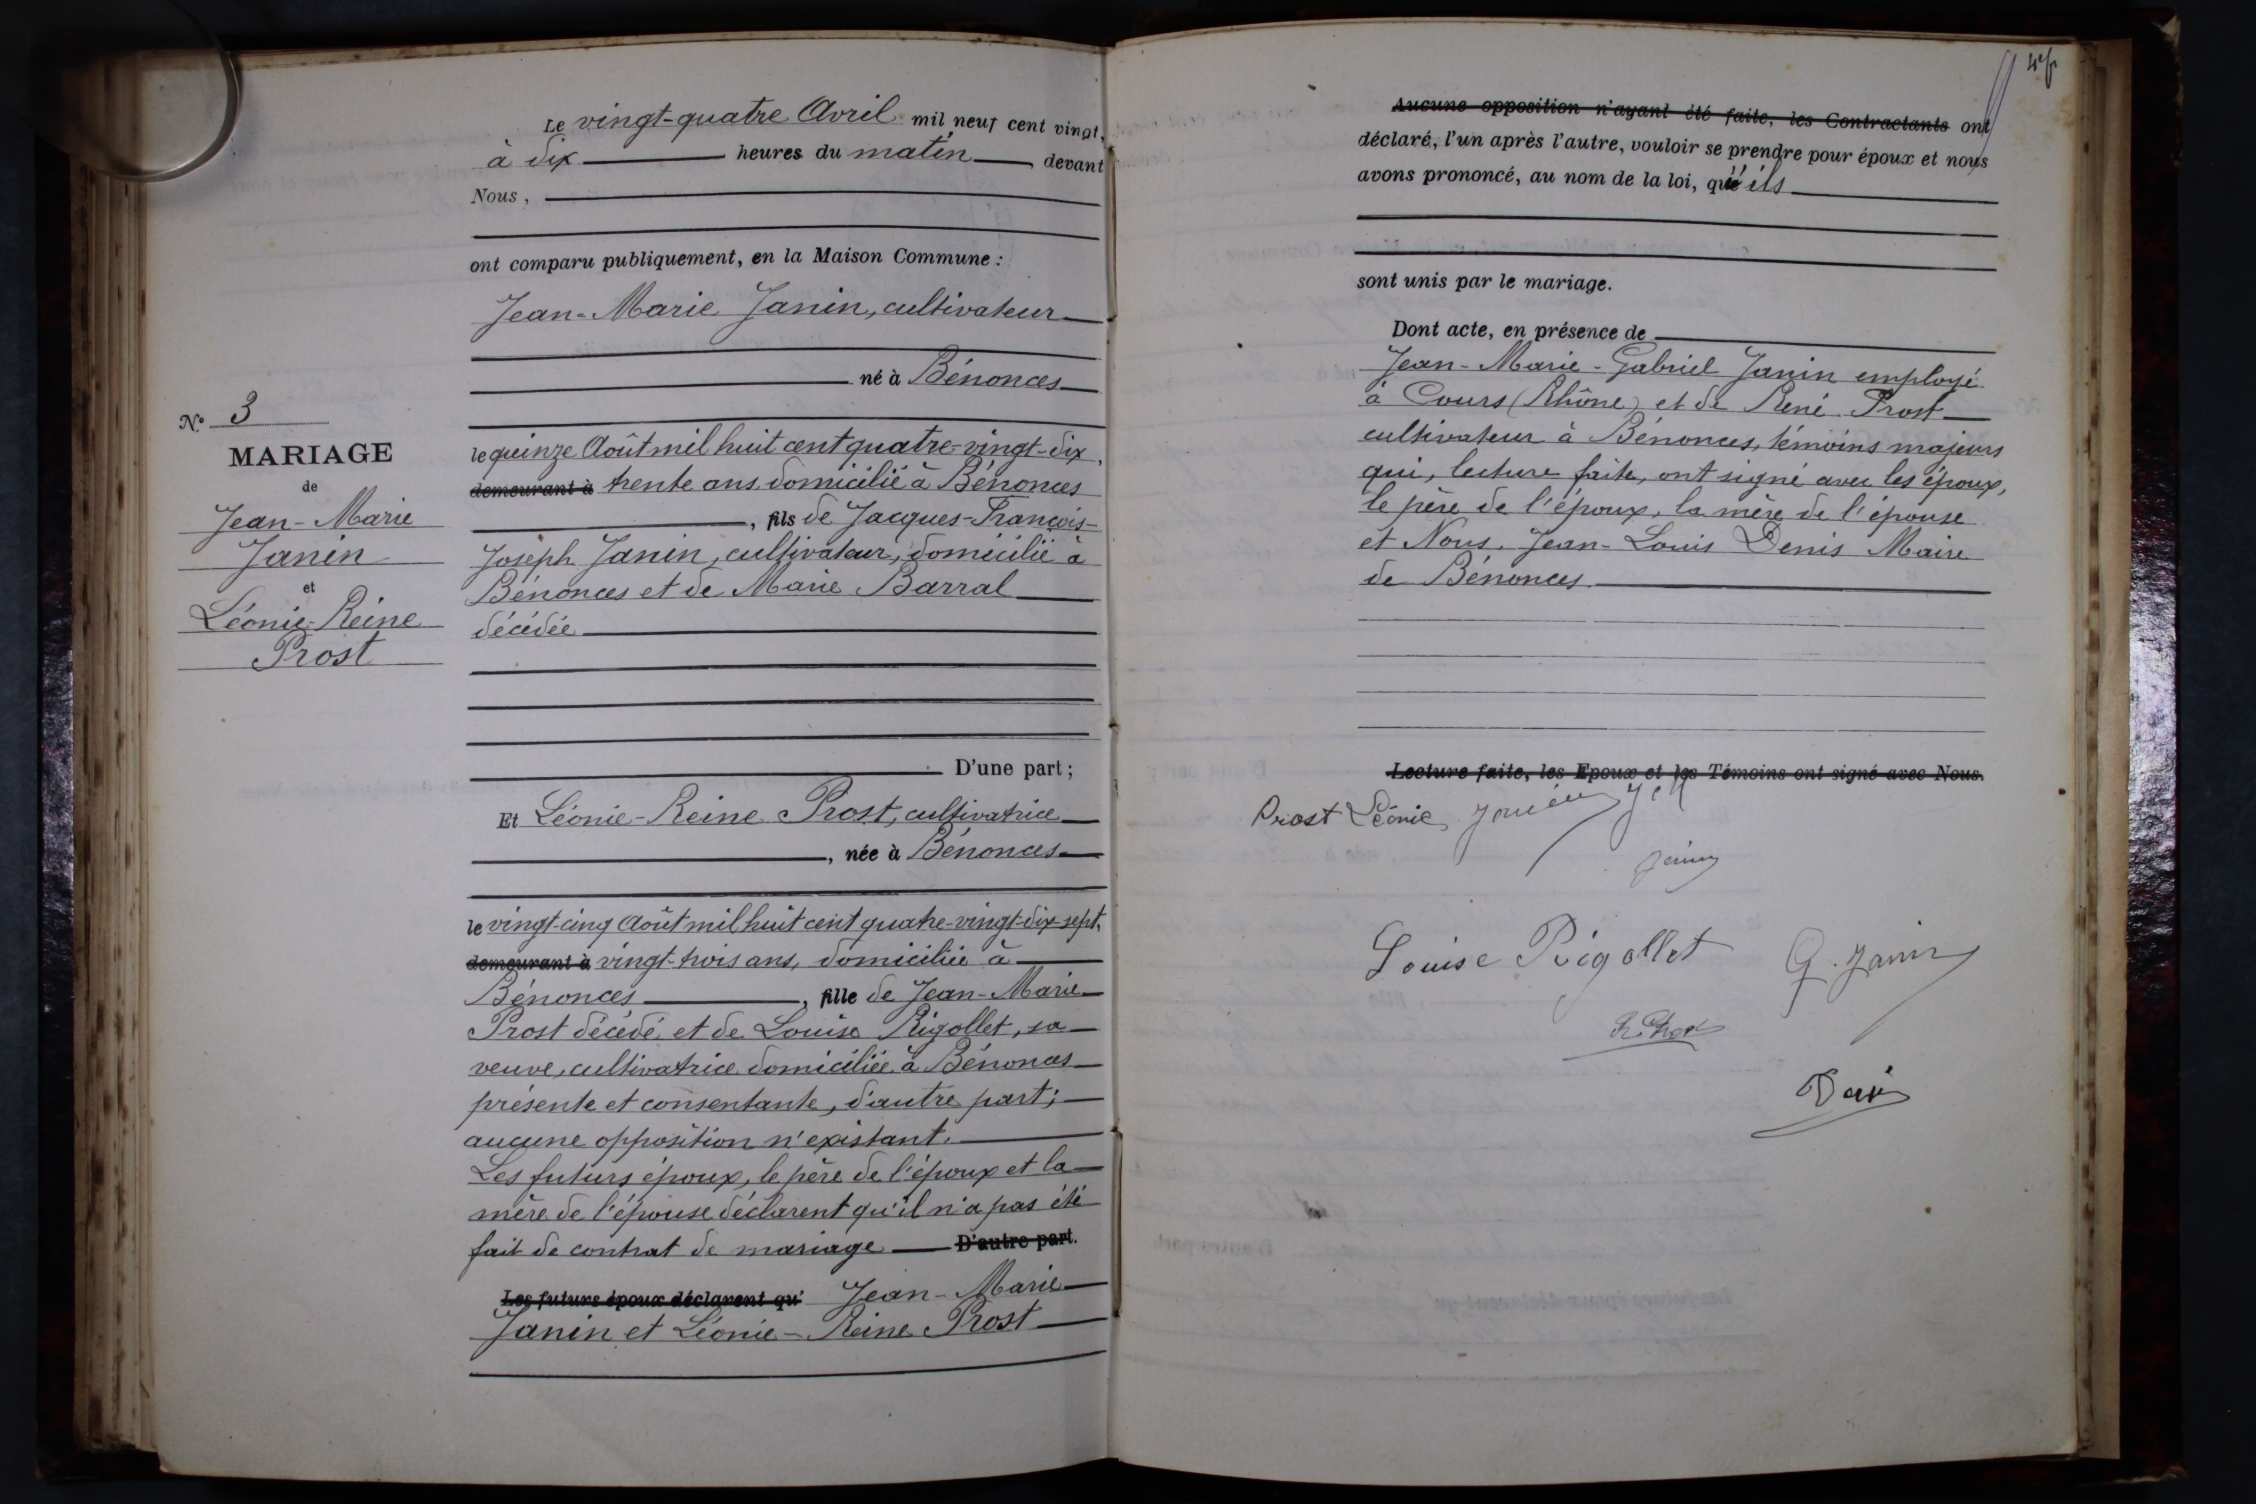 Le vingt-quatre Avril mil neuf cent vingt,
à dix heures du matin, devant
Nous,
ont comparu publiquement, en la Maison Commune :
Jean-Marie Janin, cultivateur
né à Bénonces
N° 3
MARIAGE
de
Jean-Marie
Janin
et
Léonie-Reine
Prost
le quinze Août mil huit cent quatre-vingt-dix,
demeurant à trente ans, domicilié à Bénonces
, fils de Jacques-François-
Joseph Janin, cultivateur, domicilié à
Bénonces et de Marie Barral
décédée
D'une part ;
Et Léonie-Reine Prost, cultivatrice
, née à Bénonces
le vingt-cinq Août mil huit cent quatre-vingt-dix-sept,
demeurant à vingt-trois ans, domiciliée à
Bénonces, fille de Jean-Marie
Prost décédé et de Louise Rigollet, sa
veuve, cultivatrice domiciliée à Bénonces
présente et consentante, d'autre part ;
aucune opposition n'existant.
Les futurs époux, le père de l'époux et la
mère de l'épouse déclarent qu'il n'a pas été
fait de contrat de mariage D'autre part.
Les futurs époux déclarent qu' Jean-Marie
Janin et Léonie-Reine Prost
Aucune opposition n'ayant été faite, les Contractants ont
déclaré, l'un après l'autre, vouloir se prendre pour époux et nous
avons prononcé, au nom de la loi, qu'ils
sont unis par le mariage.
Dont acte, en présence de
Jean-Marie-Gabriel Janin employé
à Cours (Rhône) et de René Prost
cultivateur à Bénonces, témoins majeurs
qui, lecture faite, ont signé avec les époux,
le père de l'époux, la mère de l'épouse
et Nous, Jean-Louis Denis Maire
de Bénonces
Lecture faite, les Epoux et les Témoins ont signé avec Nous.
Prost Léonie Janin
Janin
Louise Rigollet G. Janin
R. Prost
Denis